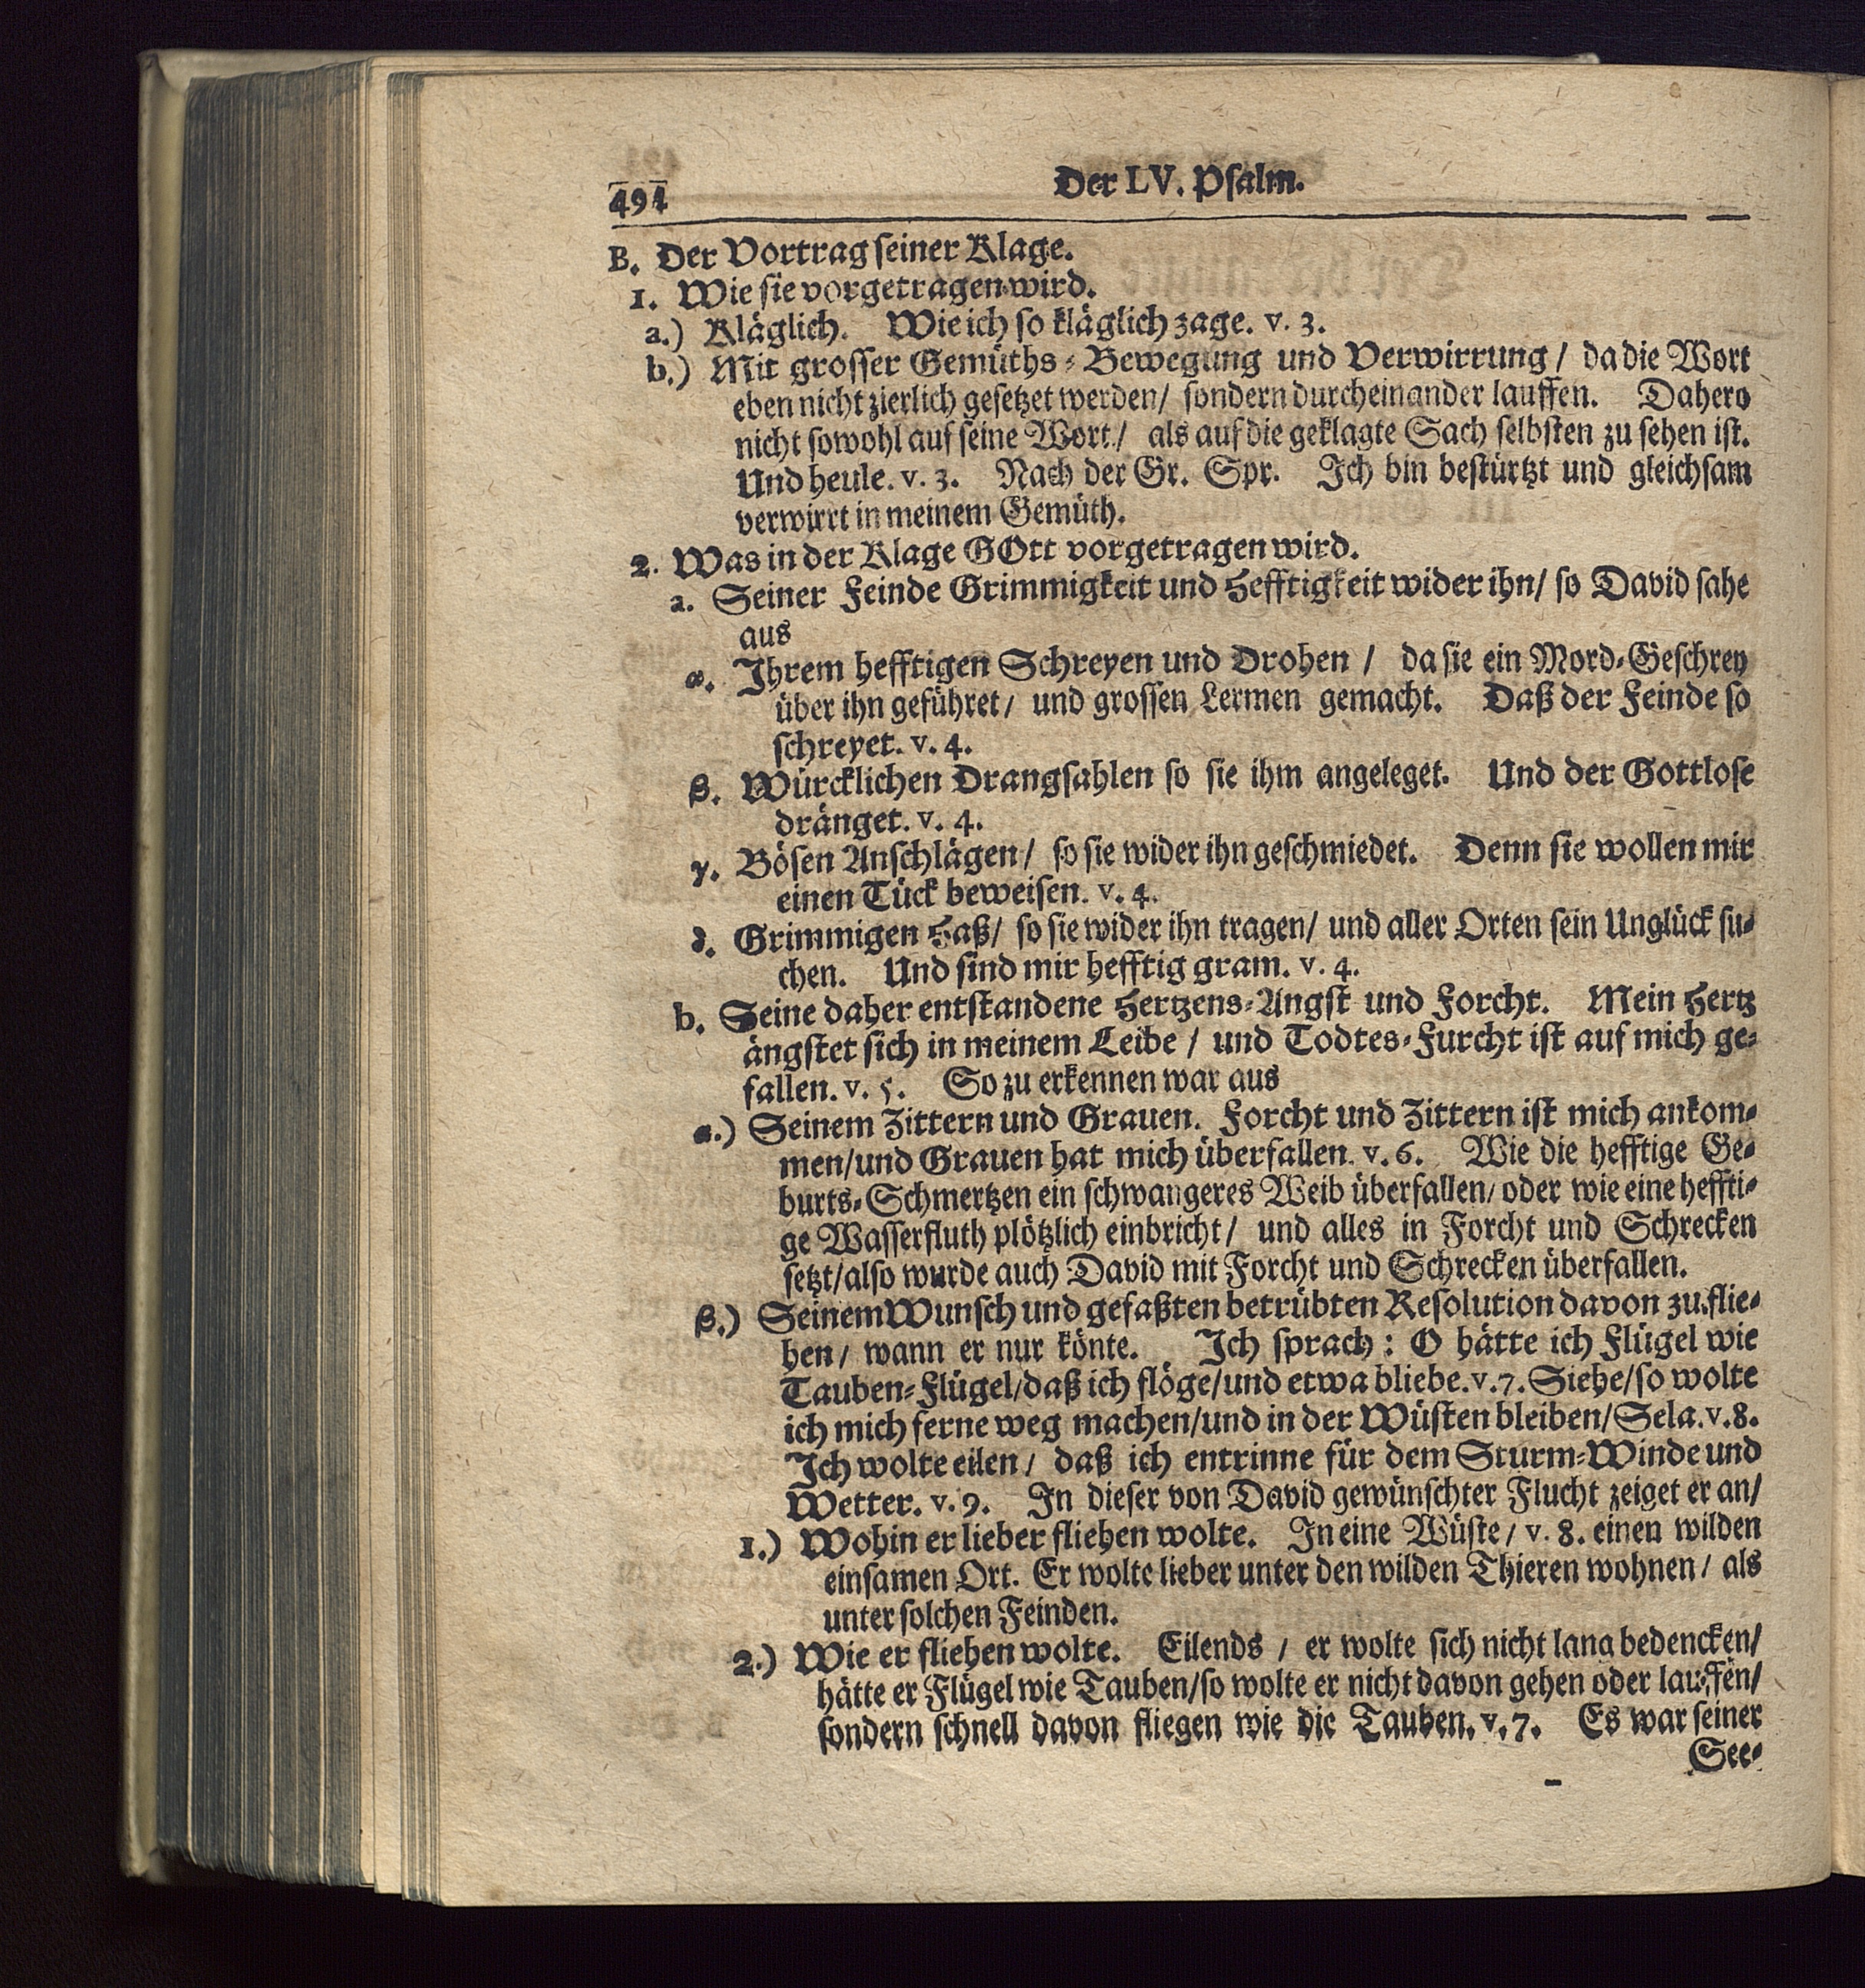 494
Der LV. Psalm.
B. Der Vortrag seiner Klage.
1. Wie sie vorgetragen wird.
a.) Kläglich. Wie ich so kläglich zage. v. 3.
b.) Mit grosser Gemüths-Bewegung und Verwirrung / da die Wort
eben nicht zierlich gesetzet werden / sondern durcheinander lauffen. Dahero
nicht sowohl auf seine Wort / als auf die geklagte Sach selbsten zu sehen ist.
Und heule. v. 3. Nach der Gr. Spr. Ich bin bestürtzt und gleichsam
verwirrt in meinem Gemüth.
2. Was in der Klage GOtt vorgetragen wird.
a. Seiner Feinde Grimmigkeit und Hefftigkeit wider ihn / so David sahe
aus
α. Ihrem hefftigen Schreyen und Drohen / da sie ein Mord-Geschrey
über ihn geführet / und grossen Lermen gemacht. Daß der Feinde so
schreyet. v. 4.
β. Würcklichen Drangsahlen so sie ihm angeleget. Und der Gottlose
dränget. v. 4.
γ. Bösen Anschlägen / so sie wider ihn geschmiedet. Denn sie wollen mir
einen Tück beweisen. v. 4.
δ. Grimmigen Haß / so sie wider ihn tragen / und aller Orten sein Unglück su-
chen. Und sind mir hefftig gram. v. 4.
b. Seine daher entstandene Hertzens-Angst und Forcht. Mein Hertz
ängstet sich in meinem Leibe / und Todtes-Furcht ist auf mich ge-
fallen. v. 5. So zu erkennen war aus
α.) Seinem Zittern und Grauen. Forcht und Zittern ist mich ankom-
men / und Grauen hat mich überfallen. v. 6. Wie die hefftige Ge-
burts-Schmertzen ein schwangeres Weib überfallen / oder wie eine heffti-
ge Wasserfluth plötzlich einbricht / und alles in Forcht und Schrecken
setzt / also wurde auch David mit Forcht und Schrecken überfallen.
β.) Seinem Wunsch und gefaßten betrübten Resolution davon zu flie-
hen / wann er nur könte. Ich sprach: O hätte ich Flügel wie
Tauben-Flügel / daß ich flöge / und etwa bliebe. v. 7. Siehe / so wolte
ich mich ferne weg machen / und in der Wüsten bleiben / Sela. v. 8.
Ich wolte eilen / daß ich entrinne für dem Sturm-Winde und
Wetter. v. 9. In dieser von David gewünschter Flucht zeiget er an /
1.) Wohin er lieber fliehen wolte. In eine Wüste / v. 8. einen wilden
einsamen Ort. Er wolte lieber unter den wilden Thieren wohnen / als
unter solchen Feinden.
2.) Wie er fliehen wolte. Eilends / er wolte sich nicht lang bedencken /
hätte er Flügel wie Tauben / so wolte er nicht davon gehen oder lauffen /
sondern schnell davon fliegen wie die Tauben. v. 7. Es war seiner
See-